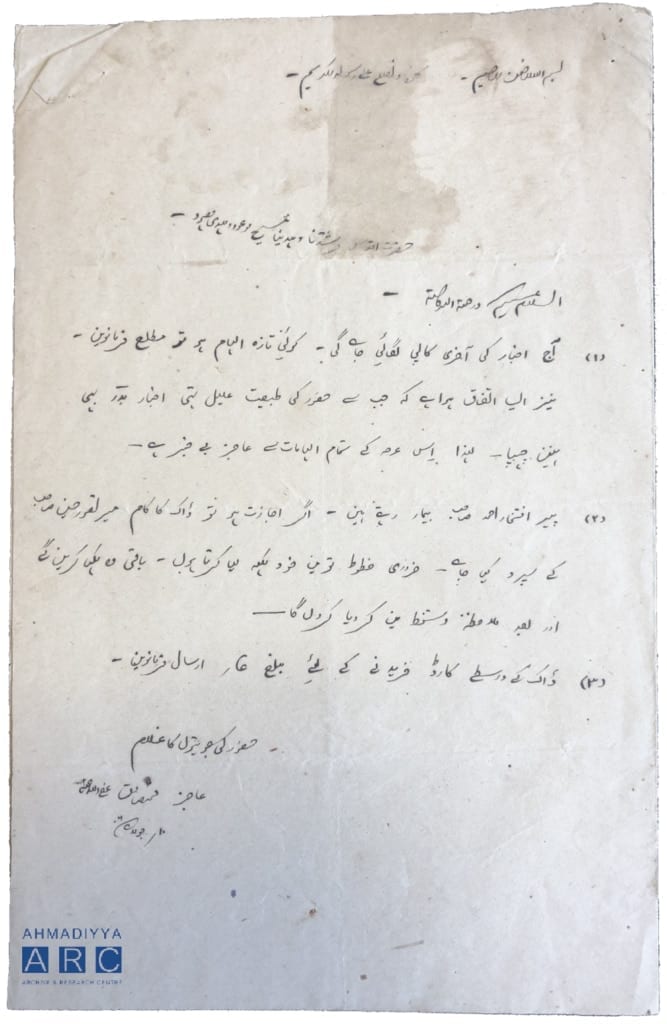 بسم اللہ الرحمن الرحیم - نحمدہ و نصلی علی رسولہ الکریم -
حضرت اقدس مرشدنا و مہدینا مسیح موعود و مہدی معہود -
السلام علیکم ورحمۃ اللہ وبرکاتہ -
(۱) آج اخبار کی آخری کاپی لگائی جاے گی - کوئی تازہ الہام ہو تو مطلع فرمانوین -
نیز ایسا اتفاق ہوا ہے کہ جب سے حضور کی طبیعت علیل تہی اخبار بدر بہی
نہین چہپا - لہذا اِس عرصہ کے تمام الہامات سے عاجز بے خبر ہے -
(۲) پیر افتخار احمد صاحب بیمار رہتے ہین - اگر اجازت ہو تو ڈاک کا کام میر صاحب
کے سپرد کیا جاے - ضروری خطوط تو مین خود لکہ لیا کرتا ہوں - باقی وہ لکہ لیا کرین گے
اور بعد ملاحظہ دستخط مین کر دیا کروں گا -
(۳) ڈاک کے واسطے کارڈ خریدنے کے لئے مبلغ ارسال فرمانوین -
حضور کی جوتیوں کا غلام
عاجز محمد صادق عفا اللہ عنہ
AHMADIYYA
ARC
ARCHIVE & RESEARCH CENTRE